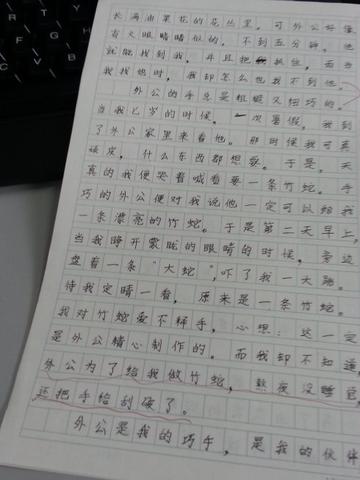 长满油菜花的花丛里。可外公好像
有火眼睛睛似的，不到五分钟，他
就能找到我，并且把执住，而当
我找他时，我却怎么也找不到他。
外公的手总是粗糙又细巧的。
当我七岁的时候，一次暑假，我到
了外公家里来看他。那时候我可真
顽皮，什么东西都想要。于是，天
真的我便哭着喊着要一条竹蛇。手
巧的外公便对我说他一定可以给我
一条漂亮的竹蛇。于是第二天早上，
当我睁开蒙胧的眼睛的时候，旁边
盘着一条“大蛇”，吓了我一大跳。
待我定睛一看，原来是一条竹蛇。
我对竹蛇爱不释手，心想：这一定
是外公精心制作的。而我却不知道，
外公为了给我做竹蛇，熬夜没睡觉
还把手给刮破了。
外公是我的巧手，是我的伙伴